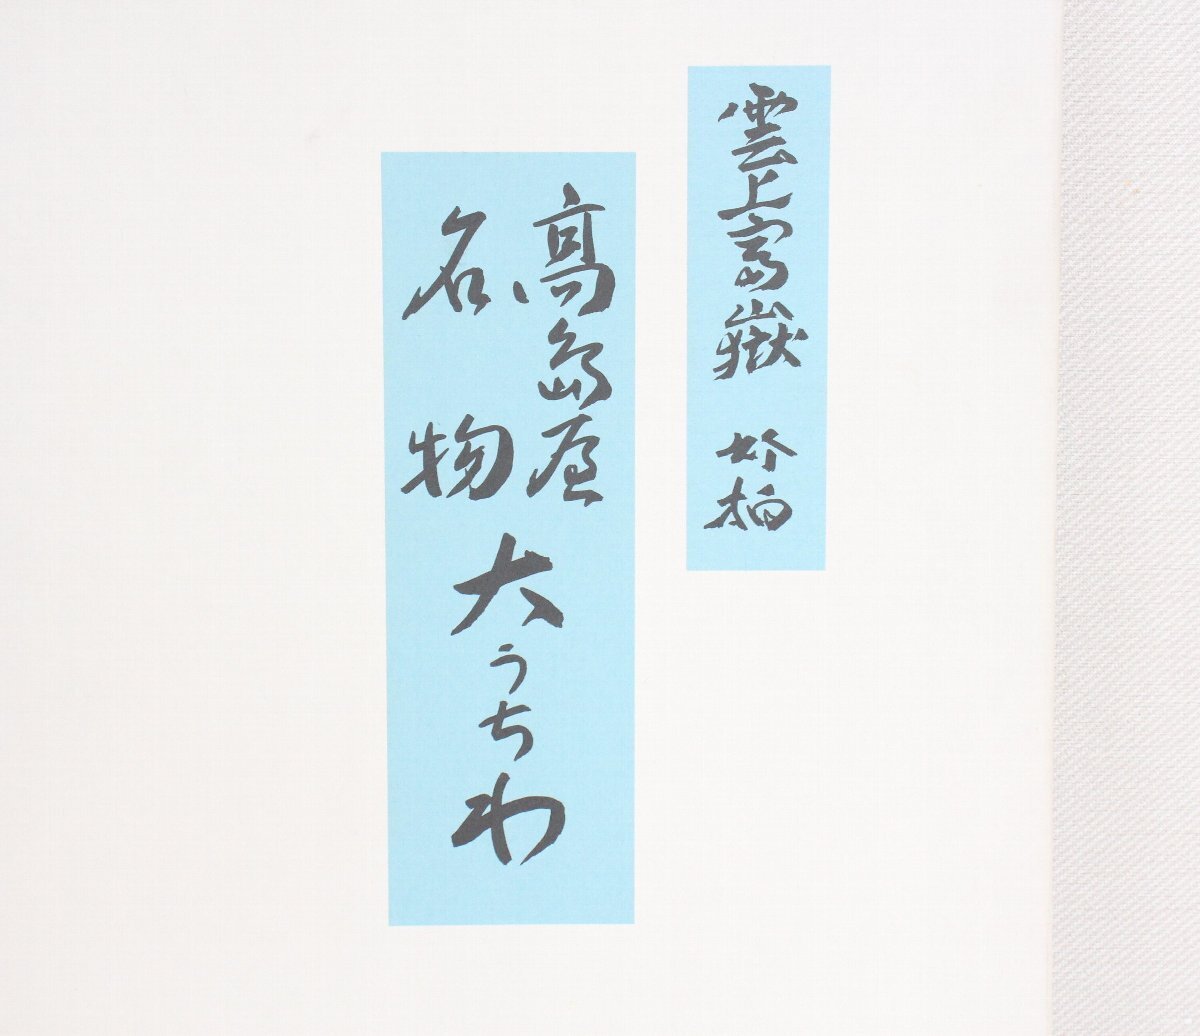 雲上富嶽 竹柏
高島屋
名物
大うちわ